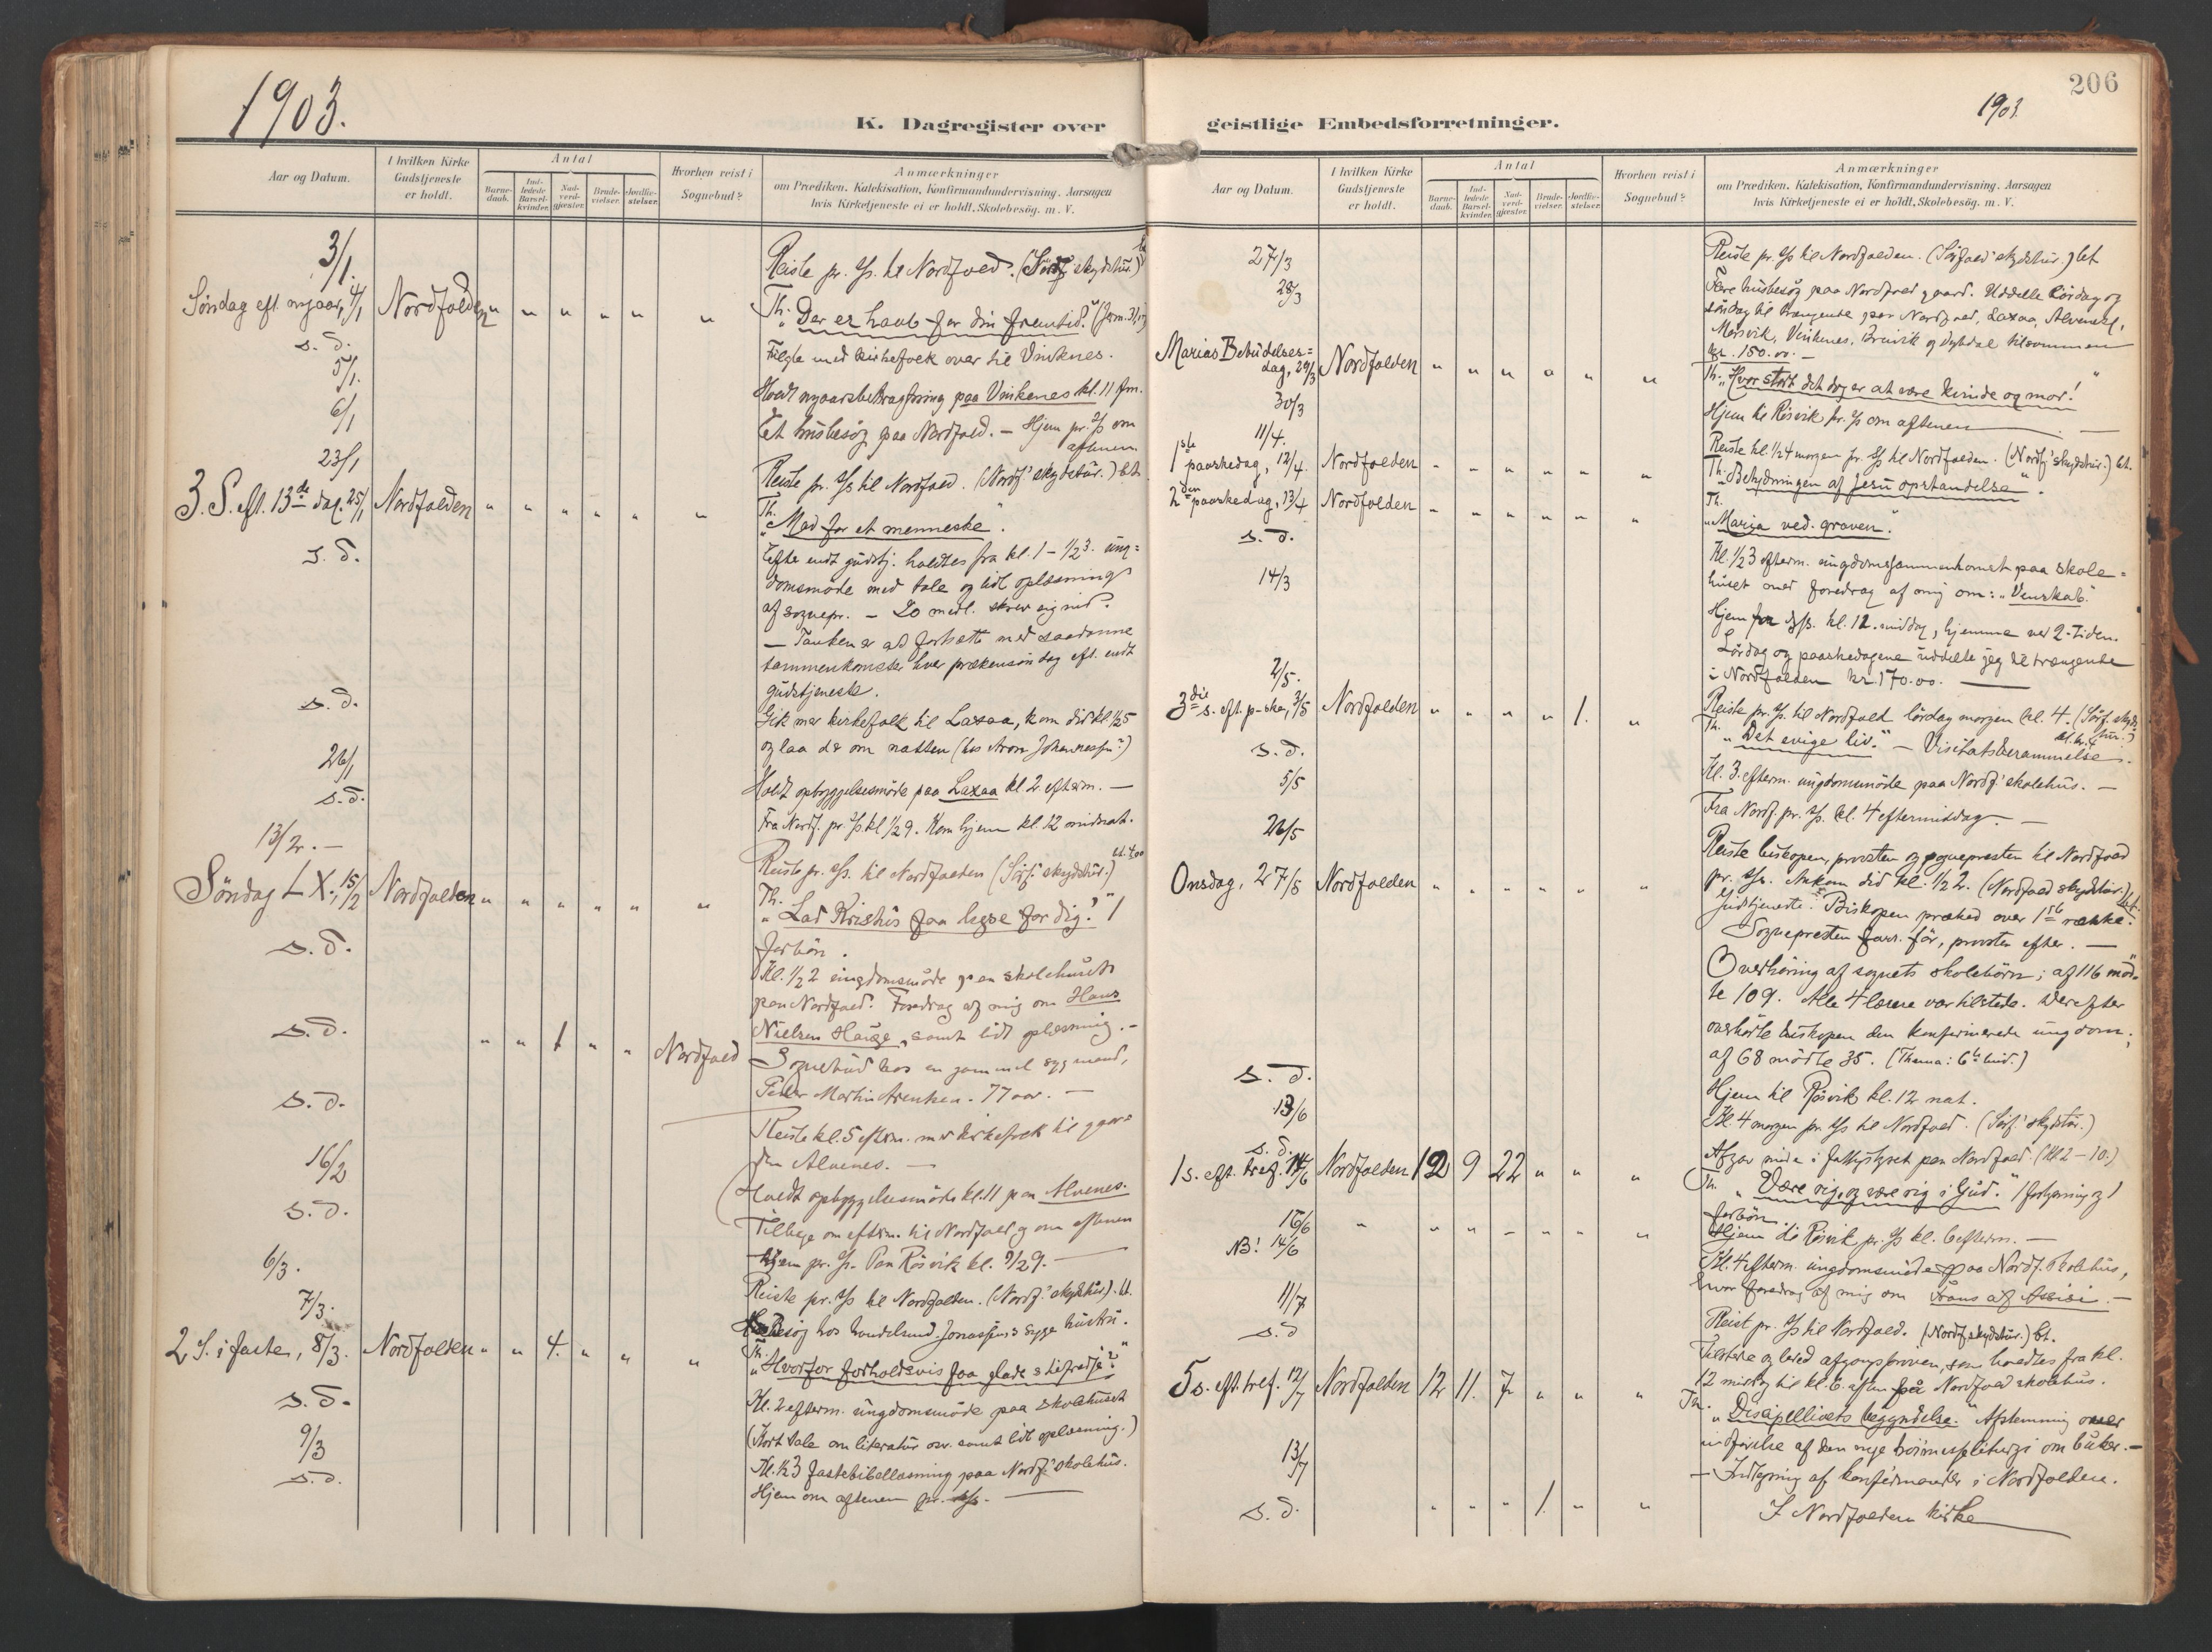 1903.
K. Dagregister over
Aar og Datum.
I hvilken Kirke Gudstjeneste er holdt.
Antal
Barne-daab.
Ind-ledede Barsel-kvinder.
Nad-verd-gjæster.
Brude-vielser.
Jordfæ-stelser.
Hvorhen reist i Sognebud?
Anmærkninger
om Prædiken, Katekisation, Konfirmandundervisning, Aarsagen
hvis Kirketjeneste ei er holdt, Skolebesög. m. V.
3/1. Reiste pr. til Nordfold. (skydstur.)
Søndag eft. nyaar, 4/1 Nordfolden " " " " " " Th: "Der er haab for din fremtid." (Jerm. 31,17)
s. d. Fulgte med kirkefolk over til Vinkenes.
5/1. Holdt nyaarsbetragtning paa Vinkenes kl. 11 fm.
6/1 Et husbesøg paa Nordfold. – Hjem pr. om
aftenen
23/1 Reiste pr. til Nordfold. (Nordf. skydstur.) bt.
3. S. eft. 13de dag. 25/1 Nordfolden " " " " " " Th. "Mad for et menneske".
s. d. Efter endt gudstj. holdtes fra kl. 1 – 1/2 3. ung=
domsmøde med tale og lidt oplæsning
af sognepr. – 20 medl. skrev sig ind.
– Tanken er at fortsætte med saadanne
sammenkomster hver prækensøndag eft. endt
gudstjeneste.
s. d. Gik med kirkefolk til Laxaa, kom did kl. 1/2 5
og laa der om natten
26/1 Holdt opbyggelsesmøde paa Laxaa kl 2 efterm. –
s. d. Fra Nordf. pr. kl 1/2 9. Kom hjem kl. 12 midnat.
13/2. – Reiste pr. til Nordfolden (Sörf. skydstur.) bt. 4,00
Søndag LX, 15/2 Nordfolden " " " " " " Th. "Lad Kristus faa lægse for dig!" /
forbön.
s. d. Kl. 1/2 2 ungdomsmøde paa skolehuset
paa Nordfold. Foredrag af mig om Hans
Nielsen Hauge, samt lidt oplæsning. –
s. d. " " 1 " " Nordfold Sognebud hos en gammel syg mand,
Peder Martin Arentsen. 77 aar. –
s. d. Reiste kl. 5 efterm. med kirkefolk til gaar=
den Alvenes. –
16/2 Holdt opbyggelsesmöde kl. 11 paa Alvenes.
s. d. Tilbage om efterm. til Nordfold og om aftenen
hjem pr. Paa Rösvik kl. 1/2 9. –
6/3. Reiste pr. til Nordfolden. (Nordf. skydstur). bt.
7/3. Besög hos handelsmd. Jonassens syge hustru.
2 S. i faste, 8/3. Nordfolden " " 4. " " " Th. "Hvorfor forholdsvis faa glade s tilfredse?"
s. d. Kl. 2 efterm. ungdomsmöde paa skolehuset
(Kort tale om literatur osv. samt lidt oplæsning.)
9/3 Kl. 1/2 3 fastebibellæsning paa Nordf. skolehus.
s. d. Hjem om aftenen pr.
206
1903.
geistlige Embedsforretninger.
Aar og Datum.
I hvilken Kirke Gudstjeneste er holdt.
Antal
Barne-daab.
Ind-ledede Barsel-kvinder.
Nad-verd-gjæster.
Brude-vielser.
Jordfæ-stelser.
Hvorhen reist i Sognebud?
Anmærkninger
om Prædiken, Katekisation, Konfirmandundervisning, Aarsagen
hvis Kirketjeneste ei er holdt, Skolebesög. m. V.
27/3 Reiste pr. til Nordfolden. (Sörfold skydstur.) bt
28/3 husbesög paa Nordfold gaard. Uddelte Lördag og
söndag til trængende paa Nordfold, Laxaa, Alvenes,
Mörsvik, Vinkenes, Brinvik og Dybdal tilsammen
kr. 150.00. –
Marias Bebudelses=
dag, 29/3 Nordfolden " " " " " " Th: "Hvor stort det dog er at være kvinde og mor!"
30/3 Hjem til Rösvik pr. om aftenen –
11/4. Reiste kl. 1/2 4 morgen pr. til Nordfolden. (Nordf. skydstur.) bt.
1ste paaskedag, 12/4. Nordfolden " " " " " " Th: "Betydningen af Jesu opstandelse".
2den paaskedag, 13/4 Nordfolden " " " " " " Th. "Maria ved graven".
s. d. Kl. 1/2 3 efterm. ungdomssammenkomst paa skole=
huset med foredrag af mig om: "Venskab."
14/3 Hjem kl. 12. middag, hjemme ved 2-Tiden.
Lördag og paaskedagene uddelte jeg til trængende
i Nordfolden kr. 170.00. –
2/5. Reiste pr. til Nordfold lördag morgen kl. 4. (Sörf. skyds
tur.)
3die s. eft. p-ske, 3/5 Nordfolden " " " " 1. " Th. "Det evige liv." – Visitatsberammelse.
s. d. Kl. 3. efterm. ungdomsmöde paa Nordf. skolehus. –
5/5 Fra Nordf. pr. kl. 4 eftermiddag. –
26/5 Reiste biskopen, provsten og sognepresten til Nordfold
pr. Ankom did kl. 1/2 2. (Nordfold skydstur.) bt.
Onsdag, 27/5 Nordfolden " " " " " " Gudstjeneste. Biskopen præked over 1ste række.
Sognepresten för, provsten efter. –
Overhöring af sognets skolebörn; af 116 möd=
te 109. Alle 4 lærere var tilstede. Derefter
overhörte biskopen den konfirmerede ungdom;
af 68 mödte 35. (Thema: 6te bud.)
s. d. Hjem til Rösvik kl. 12 nat.
13/6 Kl. 4 morgen pr. til Nordfold. (Sörf. skydstur.)
s. d. Afgav möde i fattigstyret paa Nordfold (Kl 2 – 10.)
1 s. eft. tref. 14/6 Nordfolden 12 9 22 " " " Th. "Være rig, og være rig i Gud." /
forbön.
15/6 " " " " " " " Hjem til Rösvik pr. kl. 6 efterm. –
NB! 14/6 Kl. 4 efterm. ungdomsmöde paa Nordf. skolehus,
hvor foredrag af mig om Frans af Assisi. –
11/7 Reist pr. til Nordfold. (Nordf. skydstur.) bt.
s. d Tilstede og afgangspröven, som holdtes fra kl.
12 middag til kl. 6. aften på Nordfold skolehus.
5 s. eft. tref. 12/7 Nordfolden 12 11. 7 " " " Th. "Discipellivets begyndelse." Afstemning over
indförelse af den nye
13/7 – Indtegning af konfirmander i Nordfolden.
s. d. " " " 1. " " I Nordfolden kirke